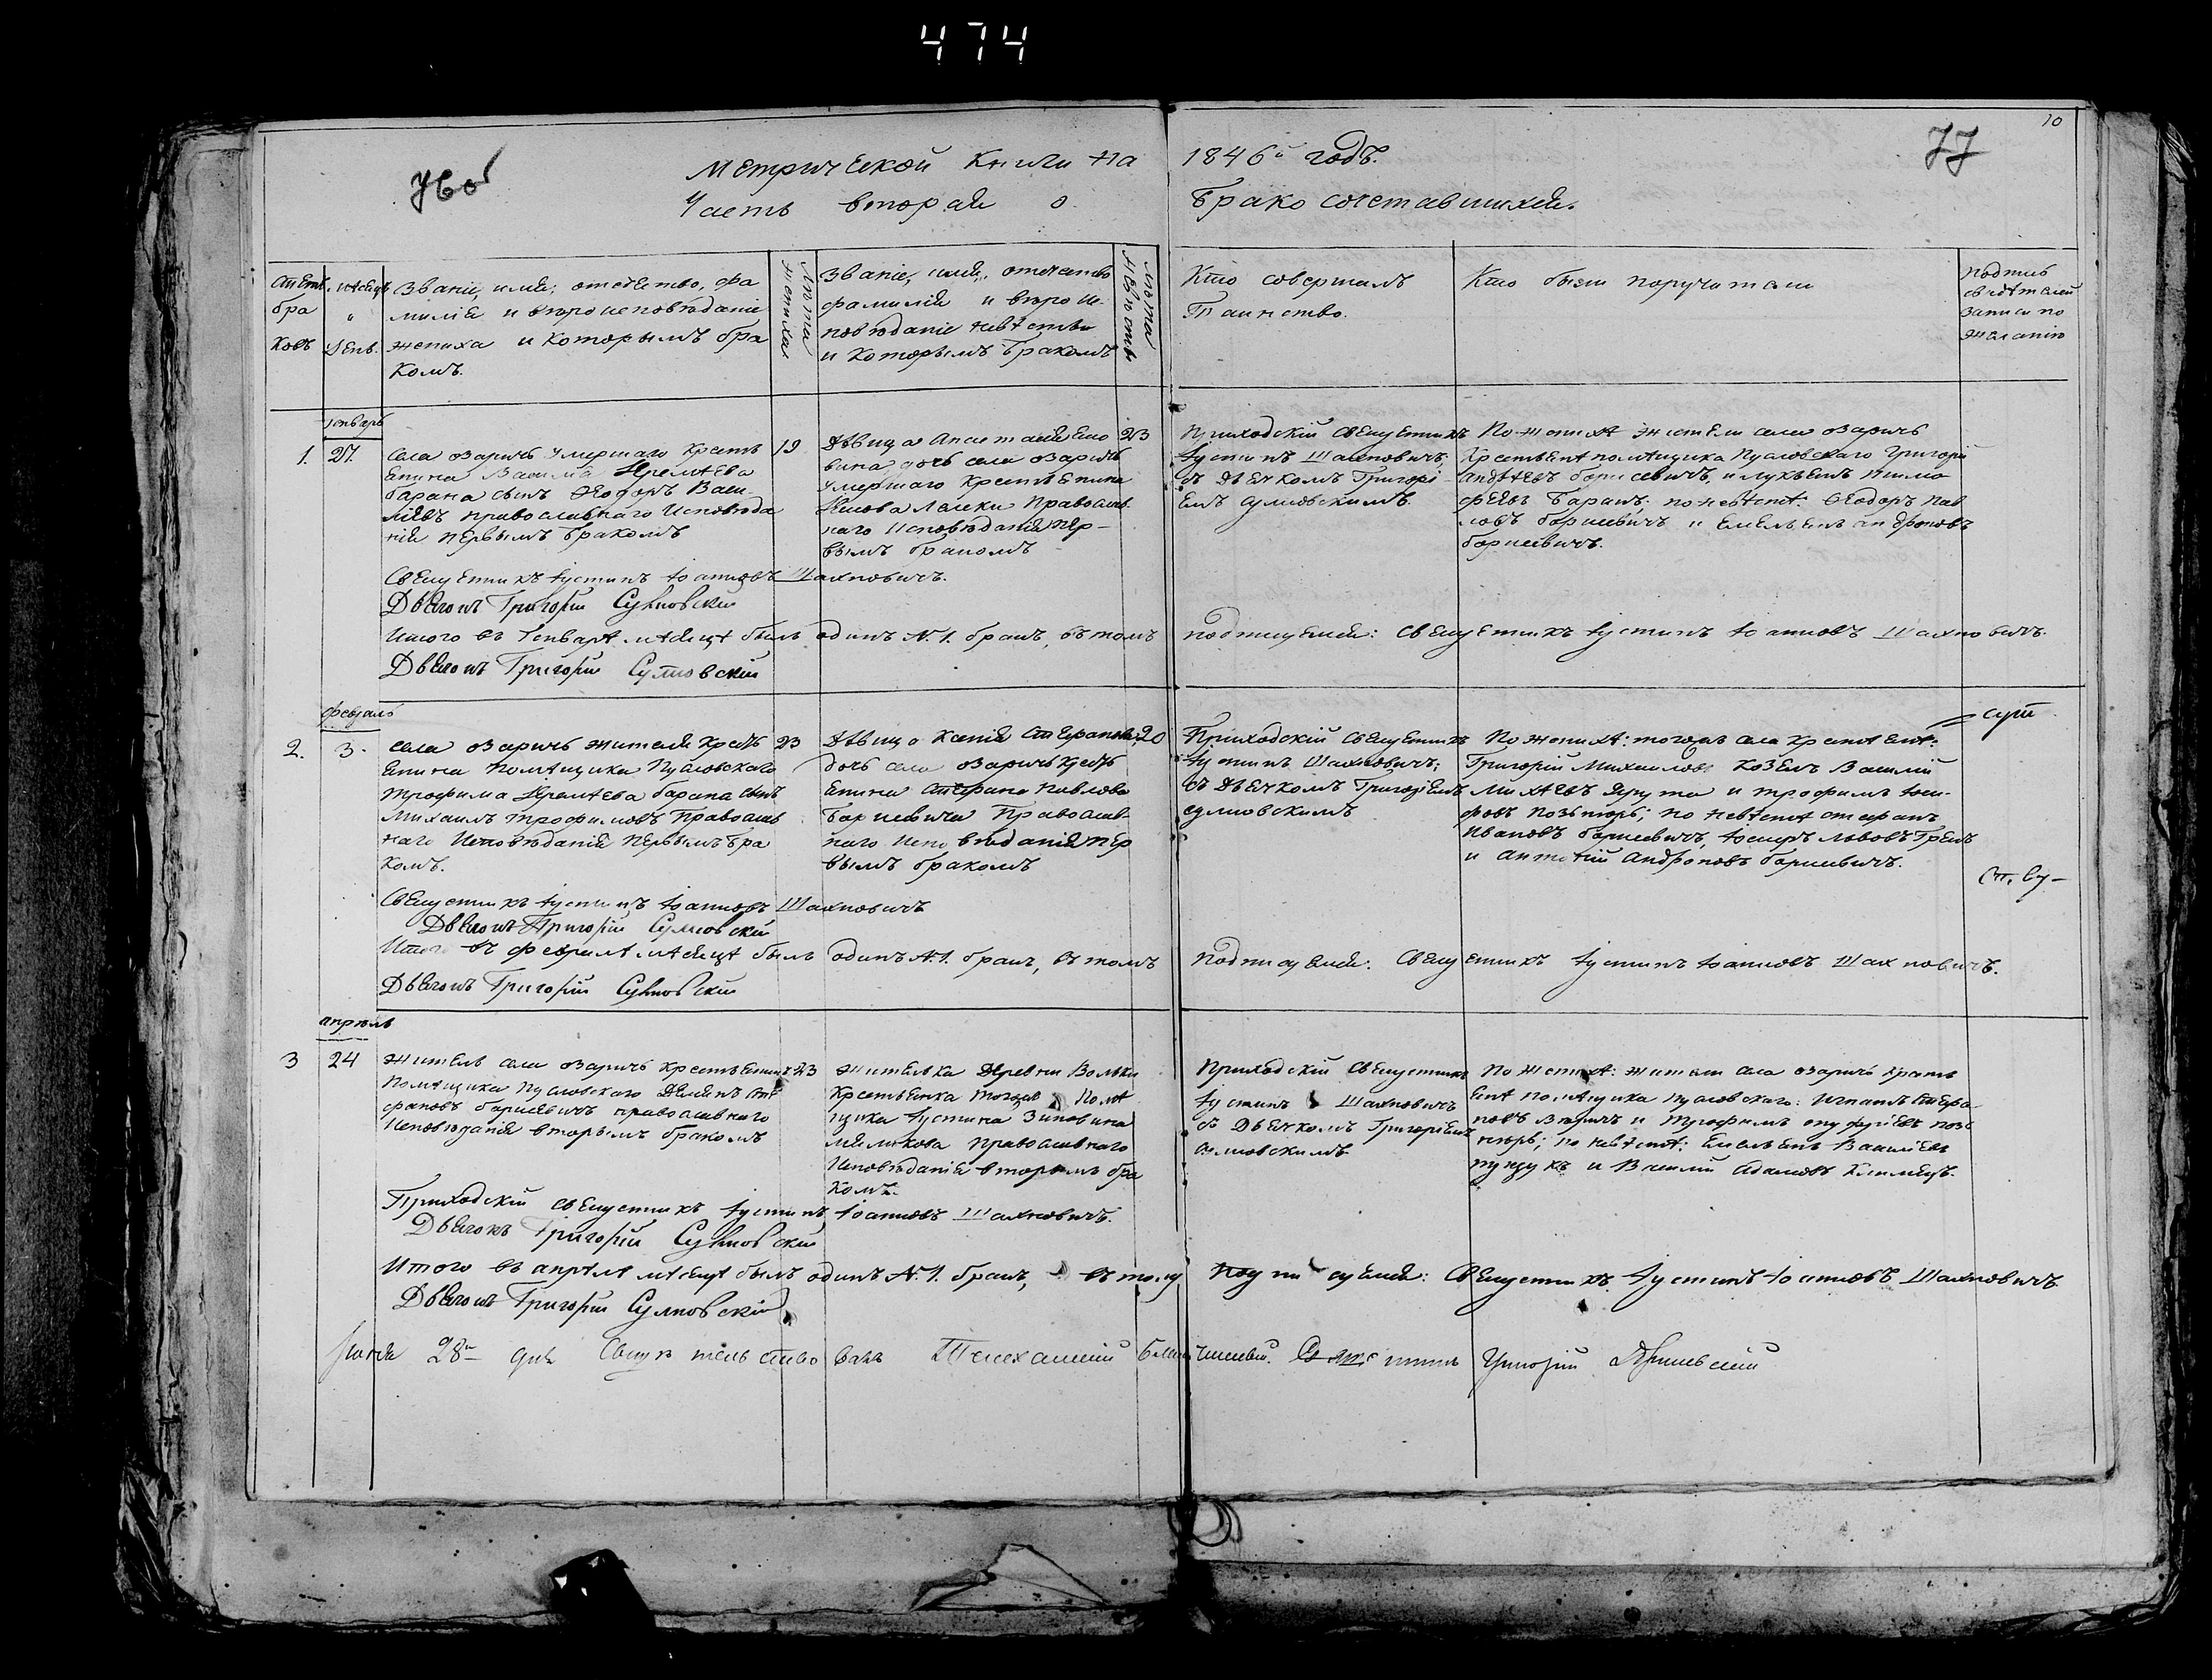 474
10
76об
77
Метрической Книги на 1846й годъ.
Часть вторая о Брако сочетавшихся.
Счетъ бра ковъ
Мѣсяцъ и День.
Званіе, имя, отечество, фа
милія и вѣроисповѣданіе
жениха и которымъ бра
комъ.
Лѣта жениха
Званіе, имя, отечество
фамилія и вѣро ис-
повѣданіе невѣсты
и которымъ бракомъ
Лѣта Невѣсты
Кто совершалъ
Таинство.
Кто были поручители
подпись
свидѣтелей
записи по
желанію
Генварь
1.
27.
Села Озаричь умершаго Кресть
янина Василія Еремѣева
барана сынъ Феодоръ Васи-
ліевъ православнаго Исповѣда
нія первымъ бракомъ
19
Дѣвица Анастасія
дочь села Озаричь
умершаго Крестьянина
Православ-
наго Исповѣданія пер-
вымъ бракомъ
23
Приходскій Священникъ
Іустинъ Шахновичъ;
съ Дьячкомъ Григорі-
емъ Сулковскимъ.
По женихѣ жители села Озаричь
Крестьяне помѣщика Пусловскаго Григорій
Андреевъ борисевичъ, и Лукьянъ Тимо
феевъ Баранъ; по невѣстѣ: Феодоръ Пав
ловъ борисевичъ и Емельянъ Андроновъ
борисевичъ.
Священникъ Іустинъ Іоанновъ Шахновичъ.
Дьячокъ Григорій Сулковскій
Итого въ Генварѣ мѣсяцѣ былъ одинъ №1. бракъ, въ томъ подписуемся: Священникъ Іустинъ Іоанновъ Шахновичъ.
Дьячокъ Григорій Сулковскій
февраль
2.
3.
села Озаричь жителя Кресть
янина помѣщика Пусловскаго
Трофима Еремѣева барана сынъ
Михаилъ Трофимовъ Православ
наго Исповѣданія Первымъ бра
комъ.
23
Дѣвица Ксенія Стефанова
дочь села Озаричь Кресть
янина Стефана Павлова
Борисевича Православ-
наго Исповѣданія пер
вымъ бракомъ
20
Приходскій Священникъ
Іустинъ Шахновичъ;
съ Дьячкомъ Григоріемъ
Сулковскимъ
По женихѣ: тогожъ села Крестьяне:
Григорій Михайловъ Козелъ Василій
и Трофимъ
по невѣстѣ Стефанъ
Ивановъ борисевичъ, Іосифъ Львовъ
и Антоній Андроновъ борисевичъ.
Священникъ Іустинъ Іоанновъ Шахновичъ
Дьячокъ Григорій Сулковскій
Итого въ февралѣ мѣсяцѣ былъ одинъ №1. бракъ, въ томъ подписуемся: Священникъ Іустинъ Іоанновъ Шахновичъ.
Дьячокъ Григорій Сулковскій
апрѣль
3
24
Житель села Озаричь Крестьянинъ
помѣщика Пусловскаго Демянъ Сте
фановъ борисевичъ православнаго
Исповѣданія вторымъ бракомъ
23
Жителька Деревни Вольки
Крестьянка тогожъ помѣ
щика Іустина Зиновина
Православнаго
Исповѣданія вторымъ бра
комъ.
Приходскій Священникъ
Іустинъ Шахновичъ
съ Дьячкомъ Григоріемъ
Сулковскимъ
По женихѣ: жители села Озаричь Кресть
яне помѣщика Пусловскаго: Игнатъ Стефа
новъ и Трофимъ
по невѣстѣ: Емельянъ Василіевъ
и Василій Адамовъ Климецъ.
Приходскій Священникъ Іустинъ Іоанновъ Шахновичъ.
Дьячокъ Григорій Сулковскій
Итого въ апрѣлѣ мѣсяцѣ былъ одинъ №1. бракъ, въ томъ подписуемся: Священникъ Іустинъ Іоанновъ Шахновичъ.
Дьячокъ Григорій Сулковскій
28 дня Свидѣтельствовалъ Телеханскій Григорій